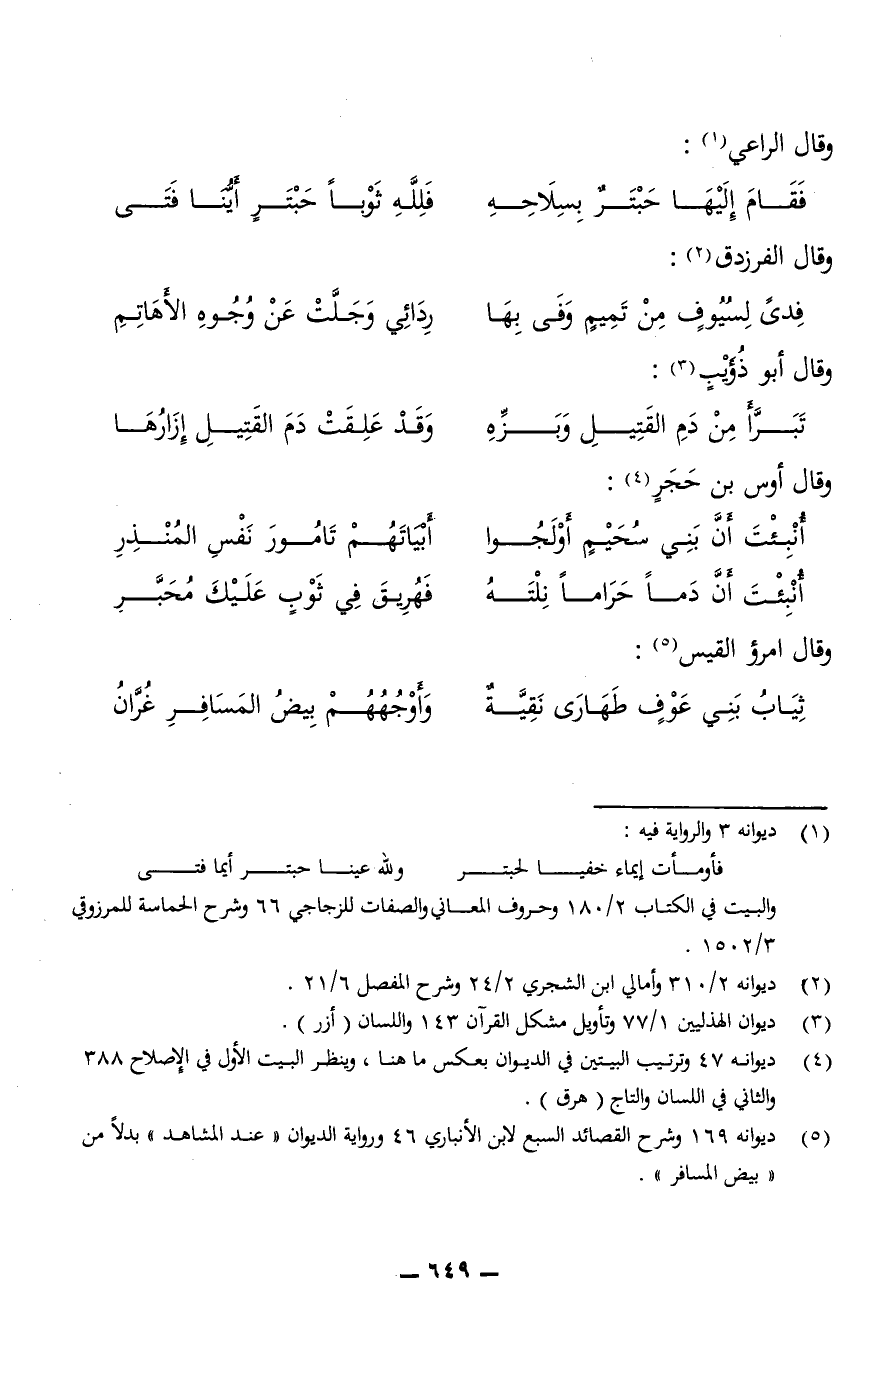 وقال الراعي(١) :
فَقَــامَ إِلَيْهَــا حَبْتَــرٌ بِسِلَاحِــهِ فَلِلَّهِ ثَوْبــاً حَبْتَــرٍ أَيُّنَــا فَتَــى
وقال الفرزدق(٢) :
فِدىً لِسُيُوفٍ مِنْ تَمِيمٍ وَفَى بِهَا رِدَائِي وَجَلَّتْ عَنْ وُجُوهِ الأَهَاتِمِ
وقال أبو ذُؤَيْبٍ(٣) :
تَبَــرَّأَ مِنْ دَمِ القَتِيــلِ وَبَــزِّهِ وَقَدْ عَلِقَتْ دَمَ القَتِيــلِ إِزَارُهَــا
وقال أوس بن حَجَرٍ(٤) :
أُنْبِئْتَ أَنَّ بَنِي سُحَيْمٍ أَوْلَجُــوا أَبْيَاتَهُــمْ تَامُــورَ نَفْسِ المُنْــذِرِ
أُنْبِئْتَ أَنَّ دَمــاً حَرَامــاً نِلْتَــهُ فَهُرِيقَ فِي ثَوْبٍ عَلَيْكَ مُحَبَّــرِ
وقال امرؤ القيس(٥) :
ثِيَابُ بَنِي عَوْفٍ طَهَارَى نَقِيَّــةٌ وَأَوْجُهُهُــمْ بِيضُ المَسَافِــرِ غُرَّانُ
(١) ديوانه ٣ والرواية فيه :
فأومــأت إيماء خفيــا لحبتــر ولله عينــا حبتــر أيما فتــى
والبيت في الكتاب ١٨٠/٢ وحروف المعــاني والصفات للزجاجي ٦٦ وشرح الحماسة للمرزوقي
١٥٠٢/٣ .
(٢) ديوانه ٣١٠/٢ وأمالي ابن الشجري ٢٤/٢ وشرح المفصل ٢١/٦ .
(٣) ديوان الهذليين ٧٧/١ وتأويل مشكل القرآن ١٤٣ واللسان ( أزر ) .
(٤) ديوانه ٤٧ وترتيب البيتين في الديوان بعكس ما هنا ، وينظر البيت الأول في الإصلاح ٣٨٨
والثاني في اللسان والتاج ( هرق ) .
(٥) ديوانه ١٦٩ وشرح القصائد السبع لابن الأنباري ٤٦ ورواية الديوان « عند المشاهد » بدلاً من
« بيض المسافر » .
— ٦٤٩ —